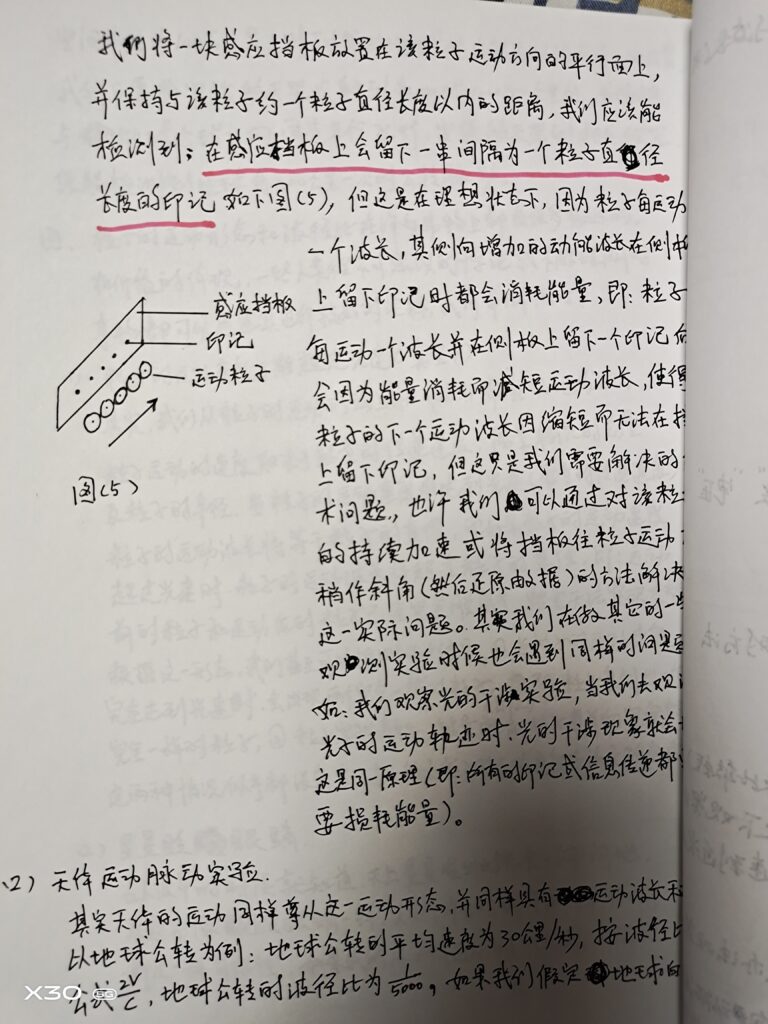 我们将一块感应挡板放置在该粒子运动方向的平行面上,
并保持与该粒子约一个粒子直径长度以内的距离,我们应该能
检测到:在感应挡板上会留下一串间隔为一个粒子直径
长度的印记 如下图(5),但这是在理想状态下,因为粒子每运动
一个波长,其侧向增加的动能波长在侧
上留下印记时都会消耗能量,即:粒子
每运动一个波长并在侧板上留下一个印记
会因为能量消耗而减短运动波长,使得
粒子的下一个运动波长因缩短而无法在
上留下印记,但这只是我们需要解决的
术问题,也许我们可以通过对该粒
的持续加速或将挡板往粒子运动
稍作斜角(然后还原数据)的方法解决
这一实际问题。其实我们在做其它的一
观测实验时候也会遇到同样的问题
如:我们观察光的干涉实验,当我们去观
光子的运动轨迹时,光的干涉现象就会
这是同一原理(即:所有的印记或信息传递都
要损耗能量)。
感应挡板
印记
运动粒子
图(5)
(2) 天体运动脉动实验.
其实天体的运动同样尊从这一运动形态,并同样具有运动波长
以地球公转为例:地球公转的平均速度为30公里/秒,按波径比
公式2V/C,地球公转的波径比为1/5000,如果我们假定地球
X30